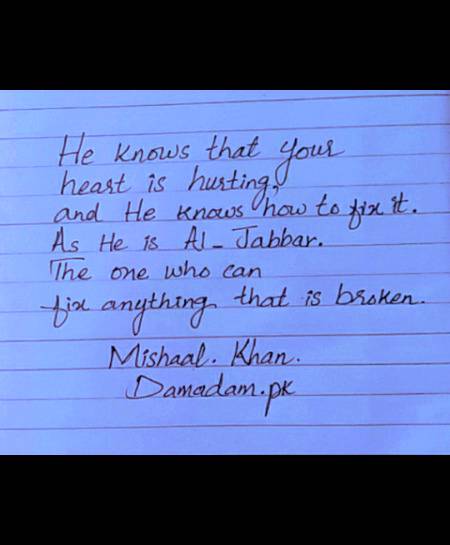 He knows that your
heart is hurting,
and He knows how to fix it.
As He is Al-Jabbar.
The one who can
fix anything that is broken.
Mishaal. Khan.
Damadam.pk